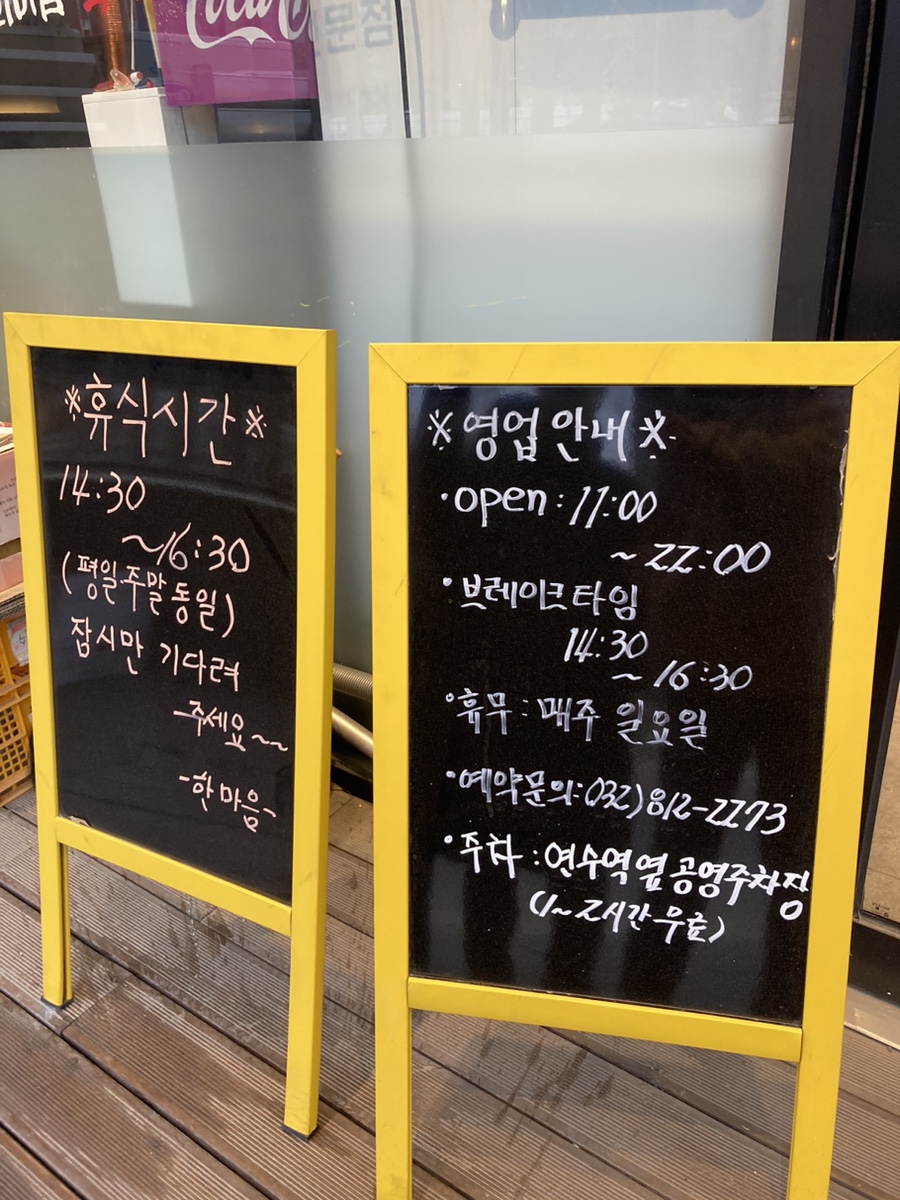 Coca-Cola
문점
※휴식시간※
14:30
~16:30
(평일주말동일)
잠시만 기다려
주세요~~
-한마음-
※영업안내※
·open:11:00
~22:00
·브레이크타임
14:30
~16:30
·휴무:매주 일요일
·예약문의:032)812-2273
·주차:연수역옆공영주차장
(1~2시간무료)